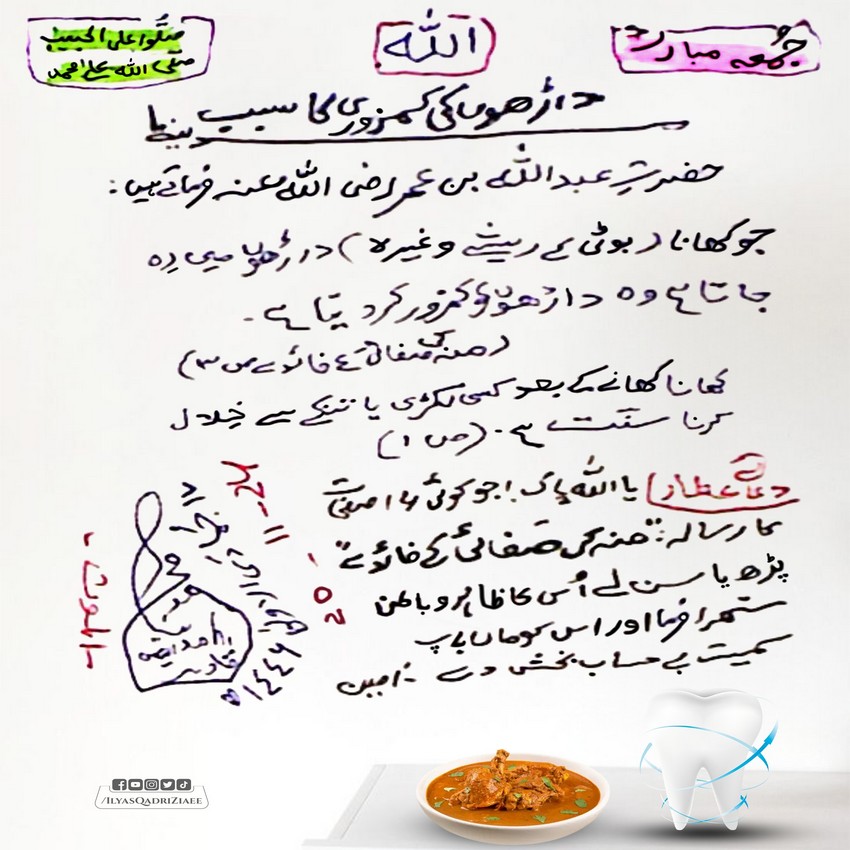 جُمُعہ مبارک
اللہ
صَلُّوا عَلَی الْحَبِیب
صلَّی اللہُ علٰی محمَّد
داڑھوں کی کمزوری کا سبب
حضرتِ عبداللہ بن عمر رضی اللہ عنہ فرماتے ہیں:
جو کھانا (بوٹی کے ریشے وغیرہ) داڑھوں میں رہ
جاتا ہے وہ داڑھوں کو کمزور کر دیتا ہے۔
(منہ کی صفائی کے فائدے ص ۳)
کھانا کھانے کے بعد کسی لکڑی یا تنکے سے خِلال
کرنا سنَّت ہے۔ (ص ۱)
دعائے عطار) یا اللہ پاک! جو کوئی 14 صفحات
کا رسالہ: "منہ کی صفائی کے فائدے"
پڑھ یا سن لے اُس کا ظاہر و باطن
ستھرا فرما اور اس کو ماں باپ
سمیت بے حساب بخش دے۔ اٰمین
۱۴۴۶
/ILYASQADRIZIAEE